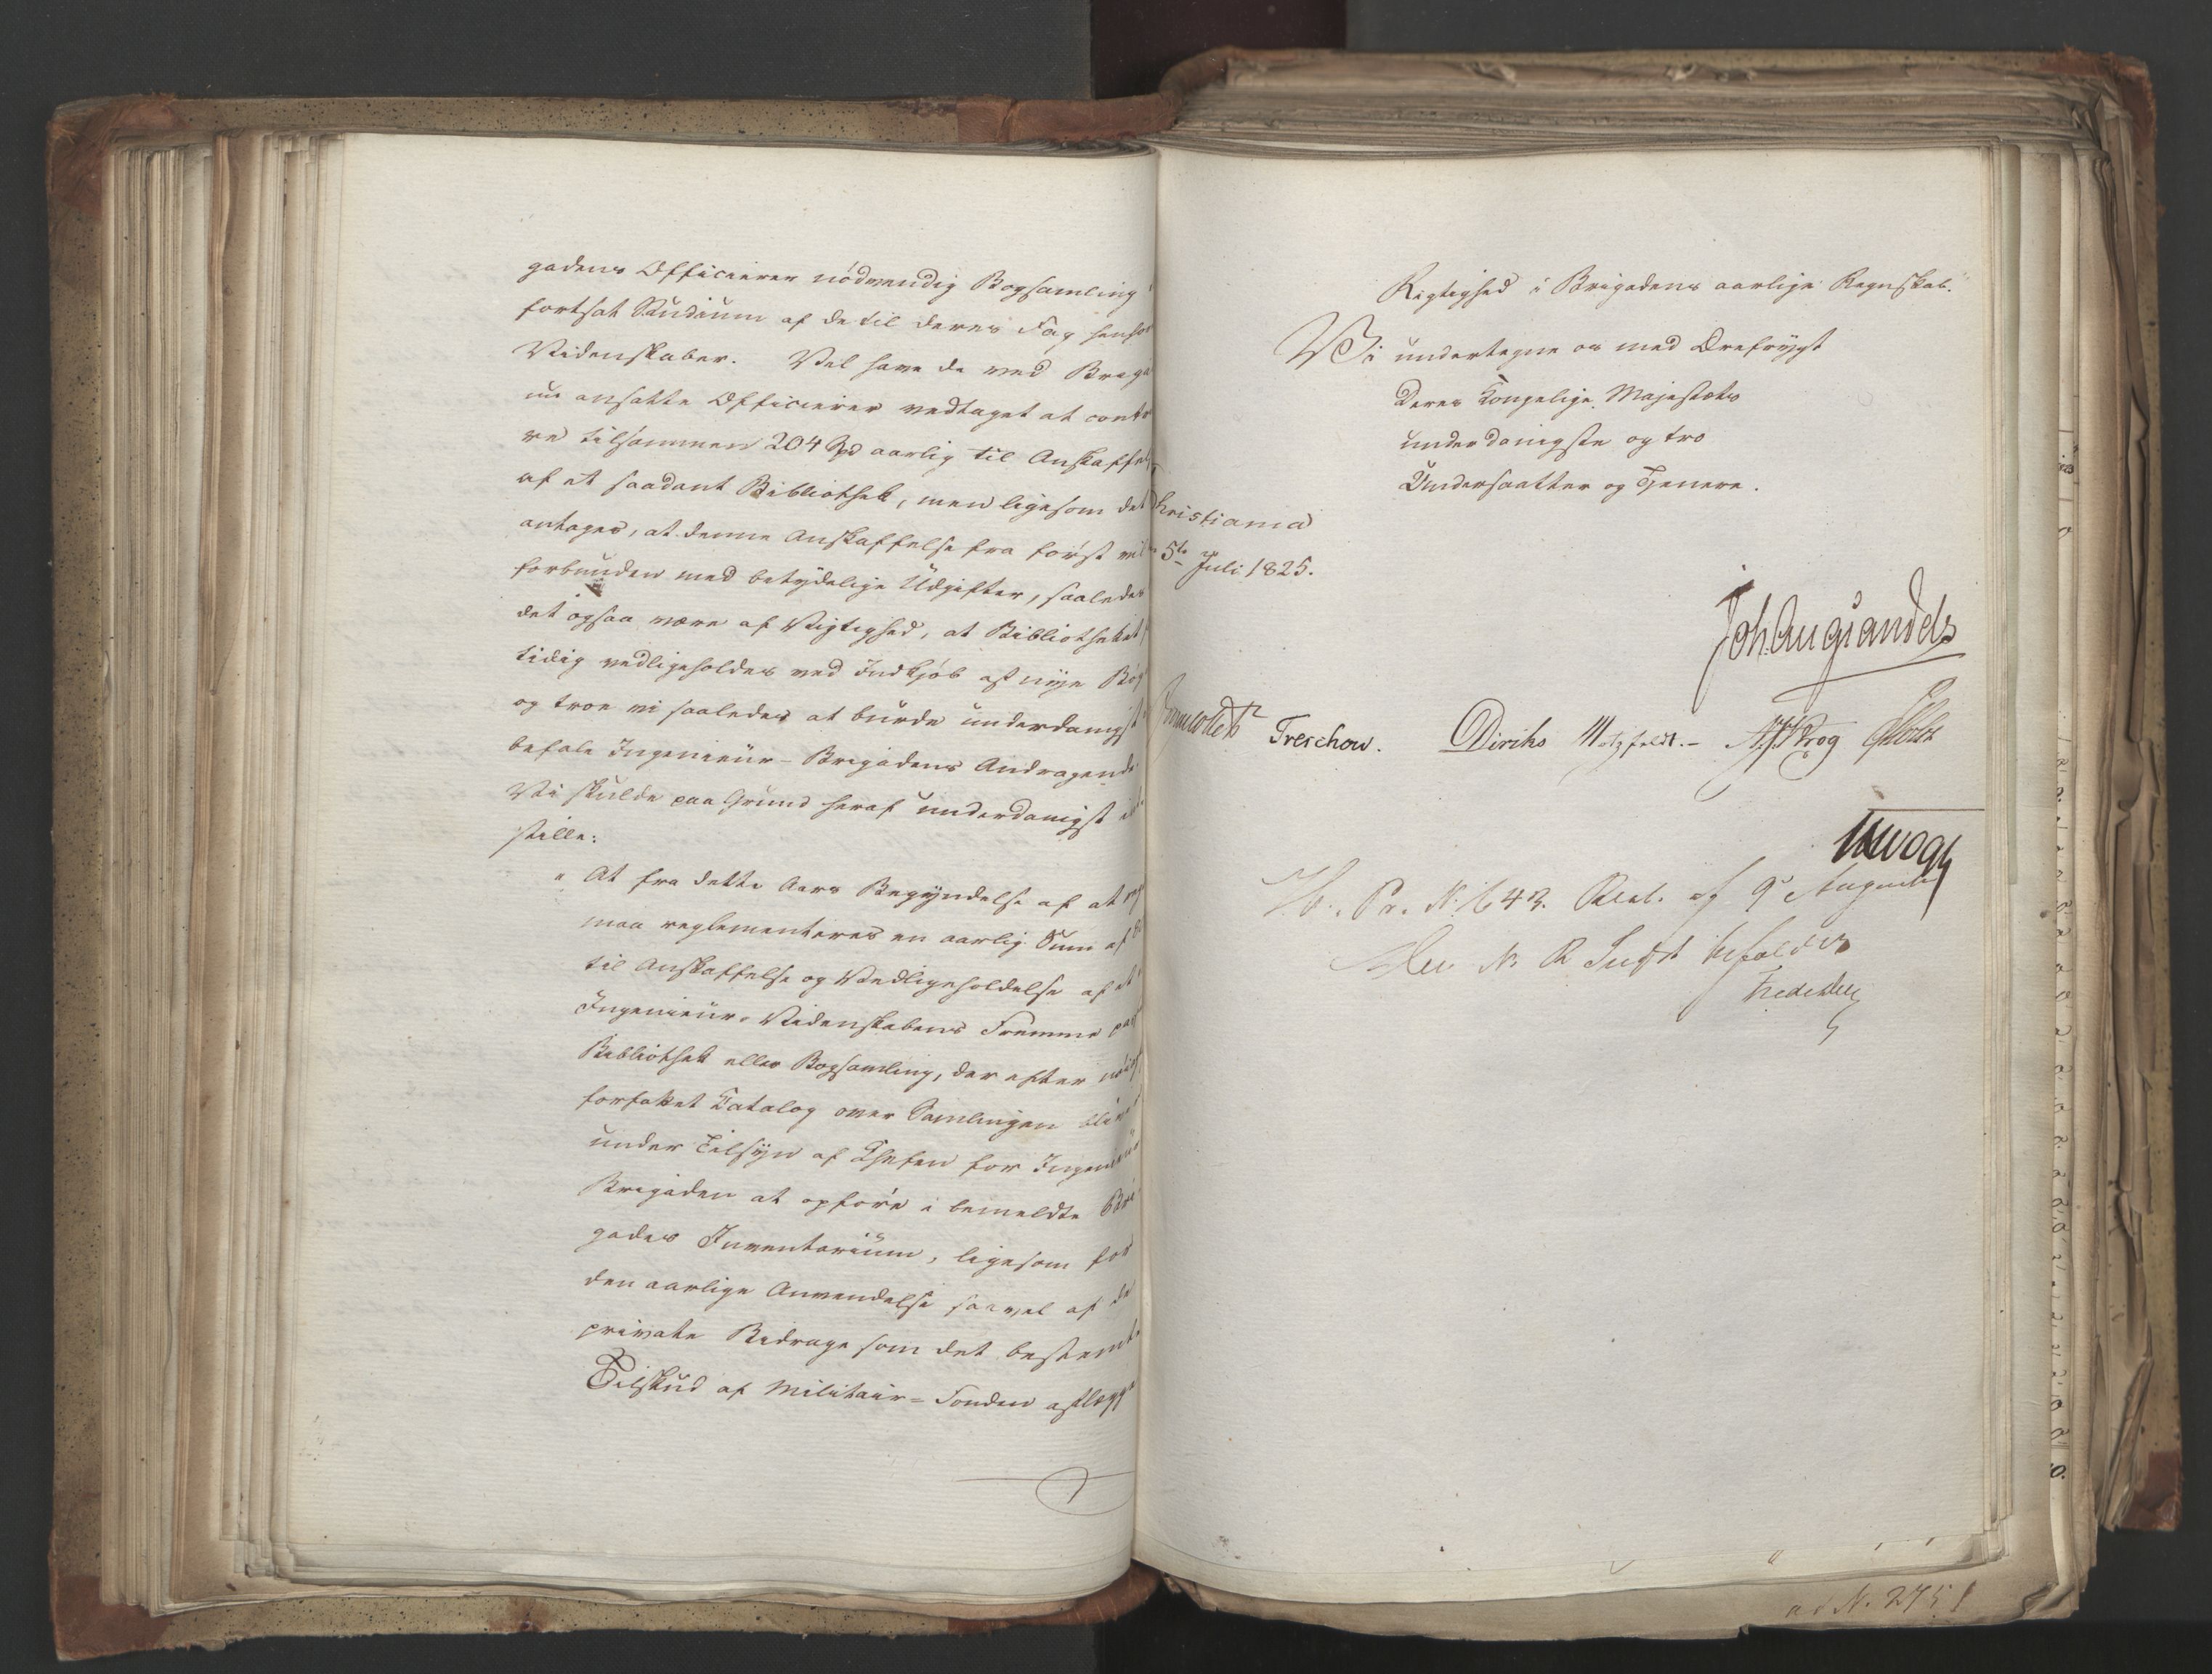 gadens Officierer nödvendig Bogsamling
fortsat Studium af de til deres Fag henhör
Videnskaber. Vel have de ved Briga
nu ansatte Officierer vedtaget at contr
re tilsammen 204 Spd aarlig til Anskaffel
af et saadant Bibliothek, men ligesom det
antages, at denne Anskaffelse fra först vil
forbunden med betydelige Udgifter, saaledes
det ogsaa være af Vigtighed, at Bibliotheket
tidig vedligeholdes ved Indkjöb af nye Bög
og troe vi saaledes at burde underdanigst
befale Ingenieur-Brigadens Andragende
Vi skulde paa Grund heraf underdanigst
stille:
" At fra dette Aars Begyndelse af at
maa reglementeres en aarlig Sum af
til Anskaffelse og Vedligeholdelse af et
Ingenieur-Videnskabens Fremme
Bibliothek eller Bogsamling, der efter
forfattet Catalog over Samlingen bliver
under Tilsyn af Chefen for Ingenieur
Brigaden at opföre i bemeldte Bri
gades Inventarium, ligesom for
den aarlige Anvendelse saavel af de
private Bidrage som det bestemte
Tilskud af Militair-Fonden aflægge
Rigtighed i Brigadens aarlige Regnskab."
Vi undertegne os med Ærefrygt
Deres Kongelige Majestæts
underdanigste og tro
Undersaatter og Tjenere.
Christiania
5te Juli 1825.
Joh. Aug. Sandels
Sommerhielm Treschow. Diriks Motzfeldt.- Krog Holst
Vogt
Pr. N. 643. Resol. af 9 August
ad N. 275